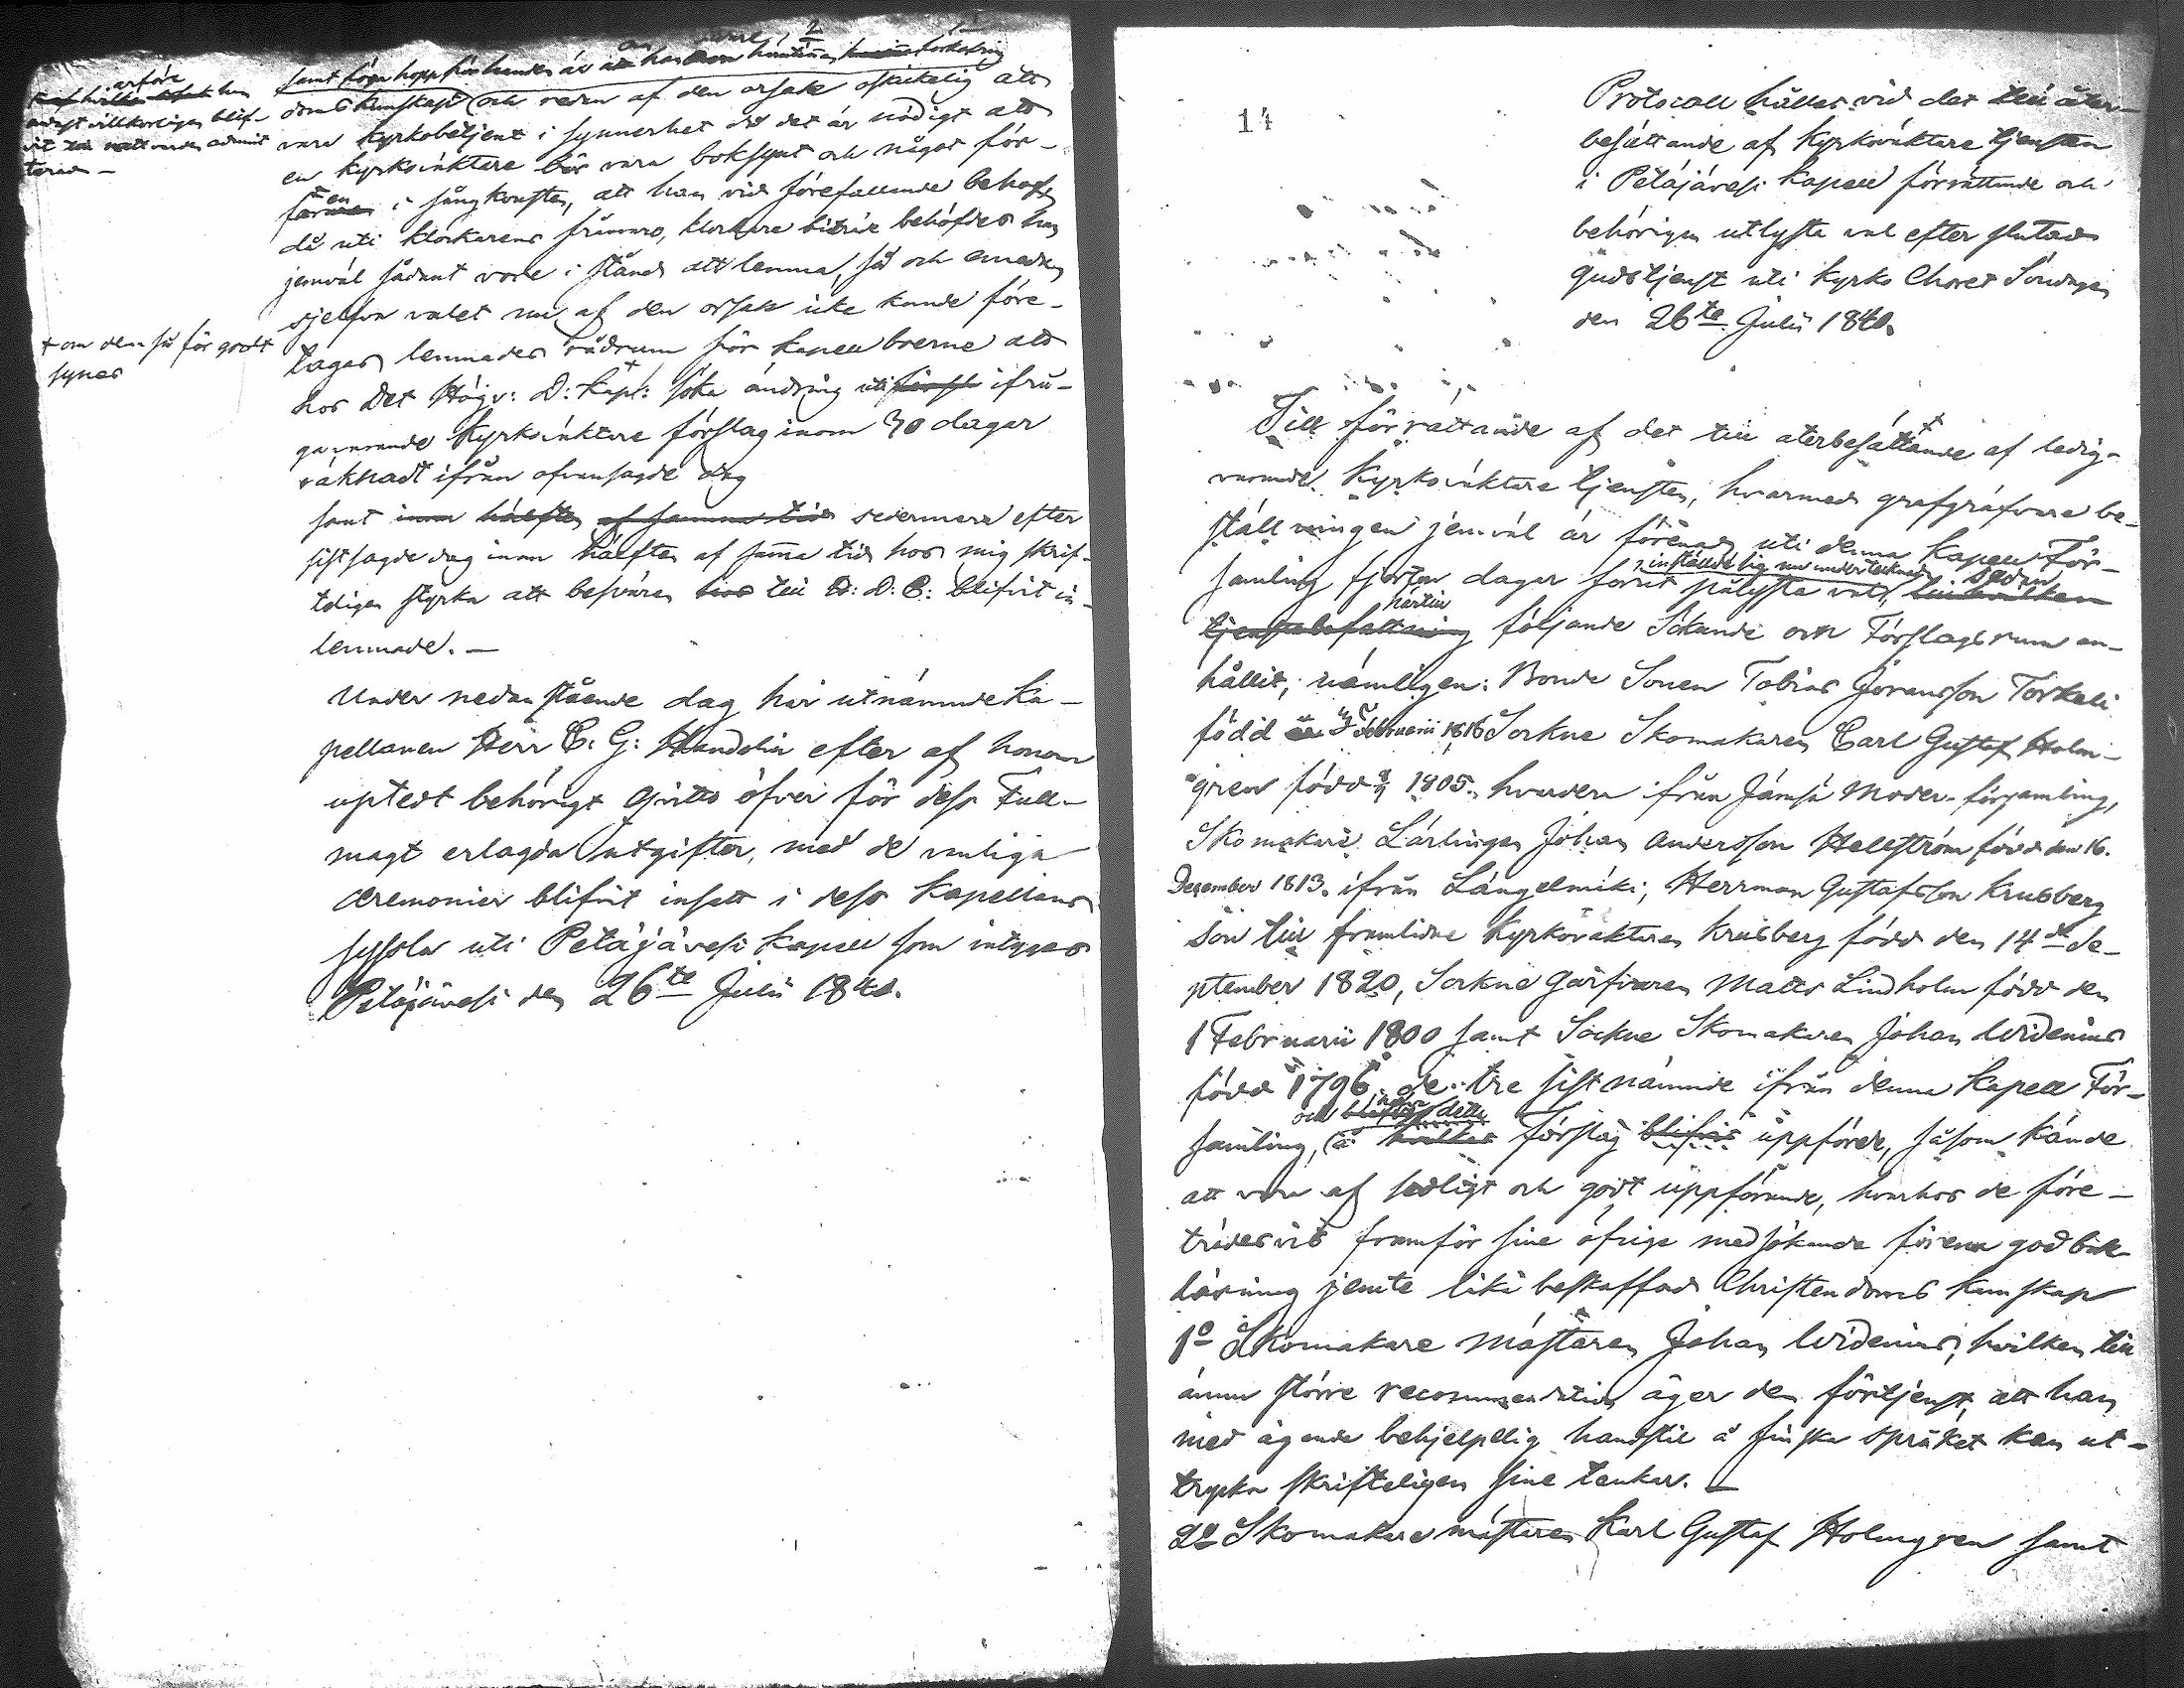 samt föga hopp
doms kunskap och redan af den orsak oskickelig att
vara kyrkobetjent i synnerhet då det är nödigt att
en kyrkväktare bör vara boksynt och något för-
faren i sångkonsten, att han vid förefallande behof
då uti klockarens frånvaro, klockare biträde behöfdes han
jemväl sådant vore i stånd att lemna, så och emedan
sjelfva valet nu af den orsak icke kunde före-
tagas lemnades rådrum för Kapell boerne att
hos Det Högv: D: Kapl: söka ändring uti ifrå-
gavarande Kyrkväktare förslag inom 30 dagar
räknadt ifrån ofvansagde dag
samt inom hälften af samma tid sedermera efter
sistsagde dag inom hälften af sama tid hos mig skrif-
teligen styrka att besvären till D: C: blifvit in-
lemnade. —
+ om dem så för godt
synes
Under nedanstående dag har utnämnde Ka-
pellanen Herr C. G: Handelin efter af honom
uptedt behörigt Qvitto öfver för dess Full-
magt erlagda utgifter, med de vanliga
Ceremonier blifvit insatt i dess Kapellans
syssla uti Petäjävesi Kapell som intygas
Petäjävesi den 26te Julii 1840.
14
Protocoll hållet vid det till åter-
besättande af Kyrkväktare tjensten
i Petäjävesi Kapell förrättande och
behörigen utlysta val efter slutad
Gudstjenst uti Kyrko Choret Söndagen
den 26te Julii 1840.
Till förrättande af det till återbesättande af ledig-
varande Kyrkväktare tjensten, hvarmed grafgräfvare be-
ställningen jemväl är förenad uti denna Kapell För-
samling fjorton dagar förut pålysta val, inställde sig sedan
tjenstebefattning härtill följande Sökande och Förslagsrum an-
hållit, nämligen: Bonde Sonen Tobias Göransson Torkeli
född Februarii 1816 Sockne Skomakaren Carl Gustaf Holm-
gren född 1805. hvardera ifrån Jämsä Moder-församling,
Skomakare Lärlingen Johan Andersson Hellström född den 16.
December 1813. ifrån Längelmäki, Herrman Gustafsson Krusberg
son till framlidne Kyrkoväktaren Krusberg född den 14de Se-
ptember 1820, Sockne Garfvaren Matts Lindholm född den
1 Februarii 1800 samt Sockne Skomakaren Johan Widenius
född 1796. de tre sistnämnde ifrån denna Kapell För-
samling, och å detta hvilket Förslag blifvit uppförde, såsom kände
att vara af sedligt och godt uppförande, hvarhos de före-
trädesvis framför sine öfrige medsökande förena god bok-
läsning jemte lika beskaffad Christendoms kunskap
1o Skomakare mästaren Johan Widenius, hvilken till
ännu större recommendation äger den förtjenst, att han
med ägande behjelplig handstil å finska språket kan ut-
trycka skrifteligen sine tankar. —
2o Skomakare mästaren Karl Gustaf Holmgren samt